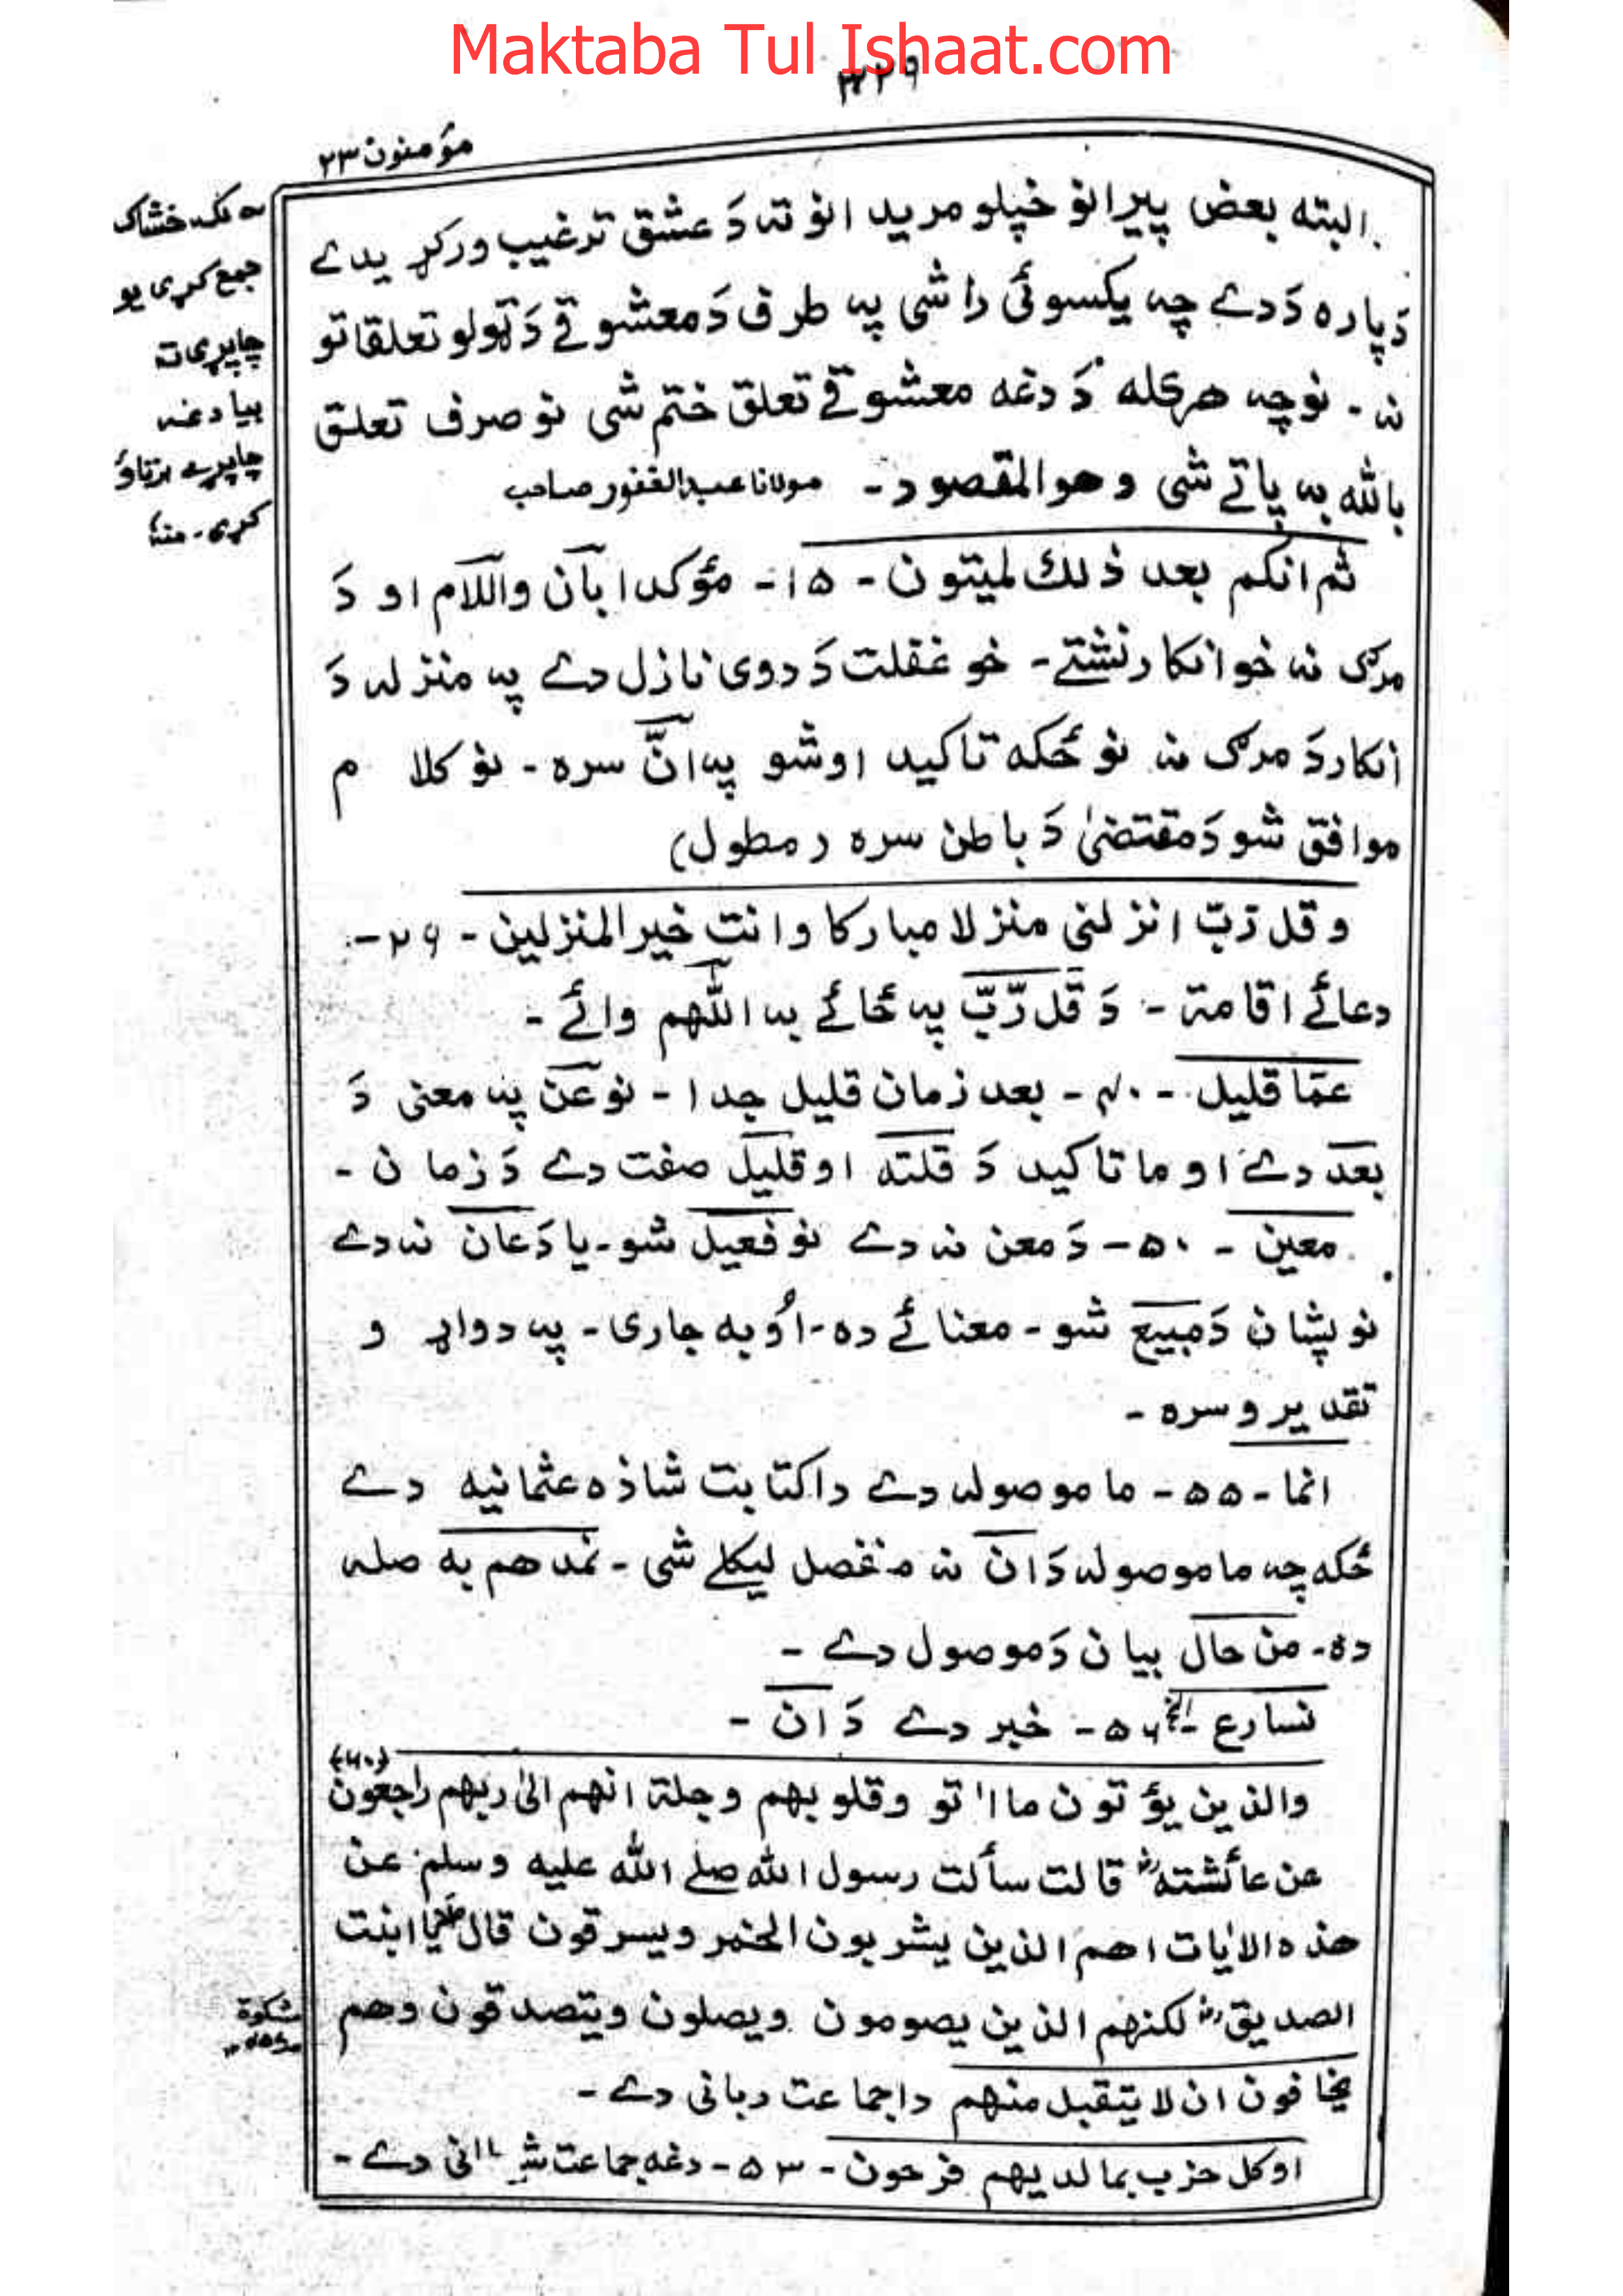 Maktaba Tul Ishaat.com
۳۲۹
مؤمنون ۲۳
البته بعض پیرانو خپلو مریدانو ته دَ عشق ترغیب ورکړیدے
دَپاره دَدے چه یکسوئی راشی په طرف دَ معشوقے دَ ټولو تعلقاتو
نه - نوچه هرکله دَ دغه معشوقے تعلق ختم شی نو صرف تعلق
بالله به پاتے شی وهوالمقصود - مولانا عبدالغفور صاحب
خشاک
جمع کړی یو
چاپړی ته
بیا دغه
چاپړے
کړی - منہ
ثم انکم بعد ذلك لمیتون - ۱۵ - مؤکدا بآن واللام او دَ
مرګ نه خو انکار نشتے - خو غفلت دَ دوی نازل دے په منزله دَ
انکار دَ مرګ نه نو ځکه تاکید اوشو په انّ سره - نو کلام
موافق شو دَ مقتضیٰ دَ باطن سره (مطول)
وقل رّبّ انزلنی منزلا مبارکا وانت خیر المنزلین - ۲۹ -
دعائے اقامة - دَ قل رّبّ په ځائے به اللّٰهم وائے -
عمّا قلیل - ۴۰ - بعد زمان قلیل جدا - نو عن په معنی دَ
بعد دے او ما تاکید دَ قلته او قلیل صفت دے دَ زمان -
معین - ۵۰ - دَ معن نه دے نو فعیل شو - یا دَ عان نه دے
نو پشان دَ مبیع شو - معنائے ده - اُوبه جاری - په دواړو
تقدیرو سره -
انما - ۵۵ - ما موصوله دے دا کتابت شاذه عثمانیه دے
ځکه چه ما موصوله دَ ان نه منفصل لیکلے شی - نمدهم به صله
ده - من حال بیان دَ موصول دے -
نسارع الخ - ۵۶ - خبر دے دَ ان -
والذین یؤتون ما اٰتو وقلوبهم وجلة انهم الیٰ ربهم راجعون (۶۰)
عن عائشته رض قالت سألت رسول الله صلے الله علیه وسلم عن
هذه الاٰیات اهم الذین یشربون الخمر ویسرقون قال یا ابنت
الصدیق رض لکنهم الذین یصومون ویصلون ویتصدقون وهم
مشکوة
یخافون ان لا یتقبل منهم دا جماعت ربانی دے -
او کل حزب بما لدیهم فرحون - ۵۳ - دغه جماعت دے -